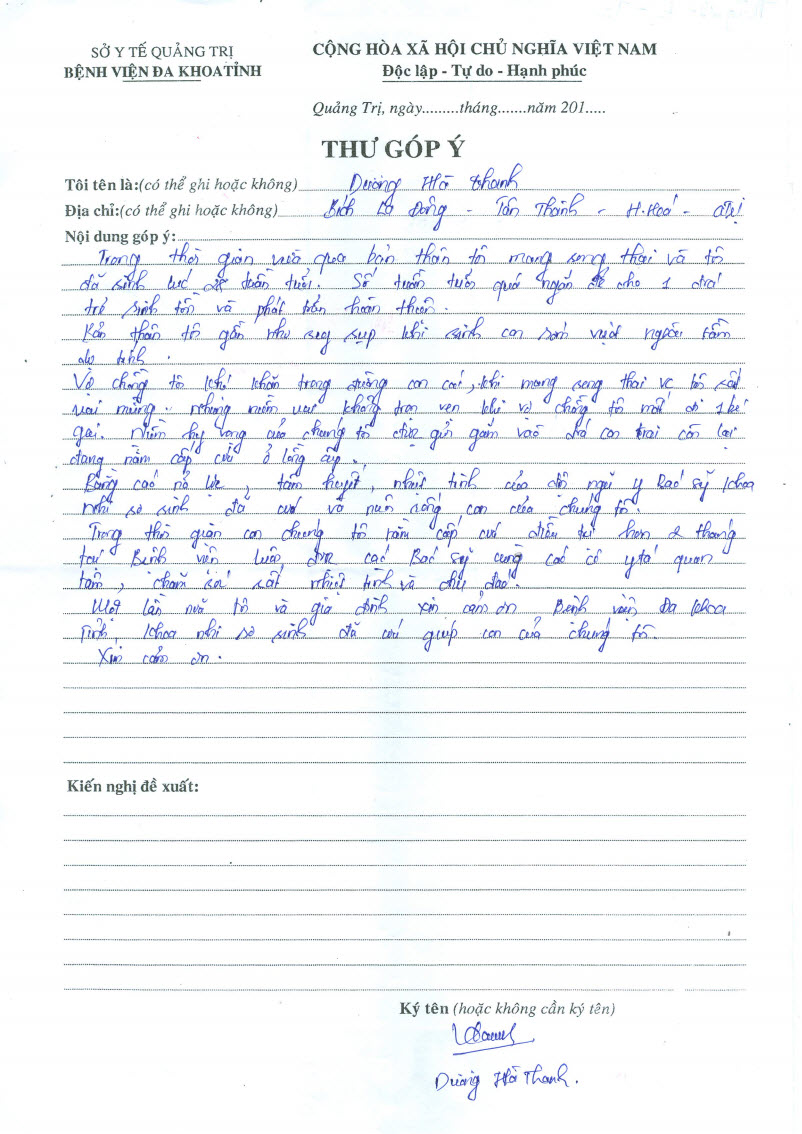 SỞ Y TẾ QUẢNG TRỊ
BỆNH VIỆN ĐA KHOA TỈNH
CỘNG HÒA XÃ HỘI CHỦ NGHĨA VIỆT NAM
Độc lập - Tự do - Hạnh phúc
Quảng Trị, ngày.........tháng.......năm 201.....
THƯ GÓP Ý
Tôi tên là:(có thể ghi hoặc không) Dương Hà Thanh
Địa chỉ:(có thể ghi hoặc không) Bích La Đông - Tân Thành - H.Hoá - QTrị
Nội dung góp ý:
Trong thời gian vừa qua bản thân tôi mang song thai và tôi
đã sinh lúc 28 tuần tuổi. Số tuần tuổi quá ngắn để cho 1 đứa
trẻ sinh tồn và phát triển hoàn thiện.
Bản thân tôi gần như suy sụp khi sinh con sớm vượt ngoài tầm
dự tính.
Vợ chồng tôi khó khăn trong đường con cái, khi mang song thai vc tôi rất
vui mừng. nhưng niềm vui không trọn vẹn khi vợ chồng tôi mất đi 1 bé
gái. Niềm hy vọng của chúng tôi được gửi gắm vào đứa con trai còn lại
đang nằm cấp cứu ở lồng ấp.
Bằng cao nỗ lực, tâm huyết, nhiệt tình của đội ngũ y Bác sỹ khoa
nhi sơ sinh đã cứu và nuôi sống con của chúng tôi.
Trong thời gian con chúng tôi nằm cấp cứu điều trị hơn 2 tháng
tại Bệnh viện luôn được các Bác sỹ cùng các cô y tá quan
tâm, chăm sóc rất nhiệt tình và chu đáo.
Một lần nữa tôi và gia đình xin cảm ơn Bệnh viện Đa khoa
Tỉnh, khoa nhi sơ sinh đã cứu giúp con của chúng tôi.
Xin cảm ơn.
Kiến nghị đề xuất:
Ký tên (hoặc không cần ký tên)
Dương Hà Thanh.